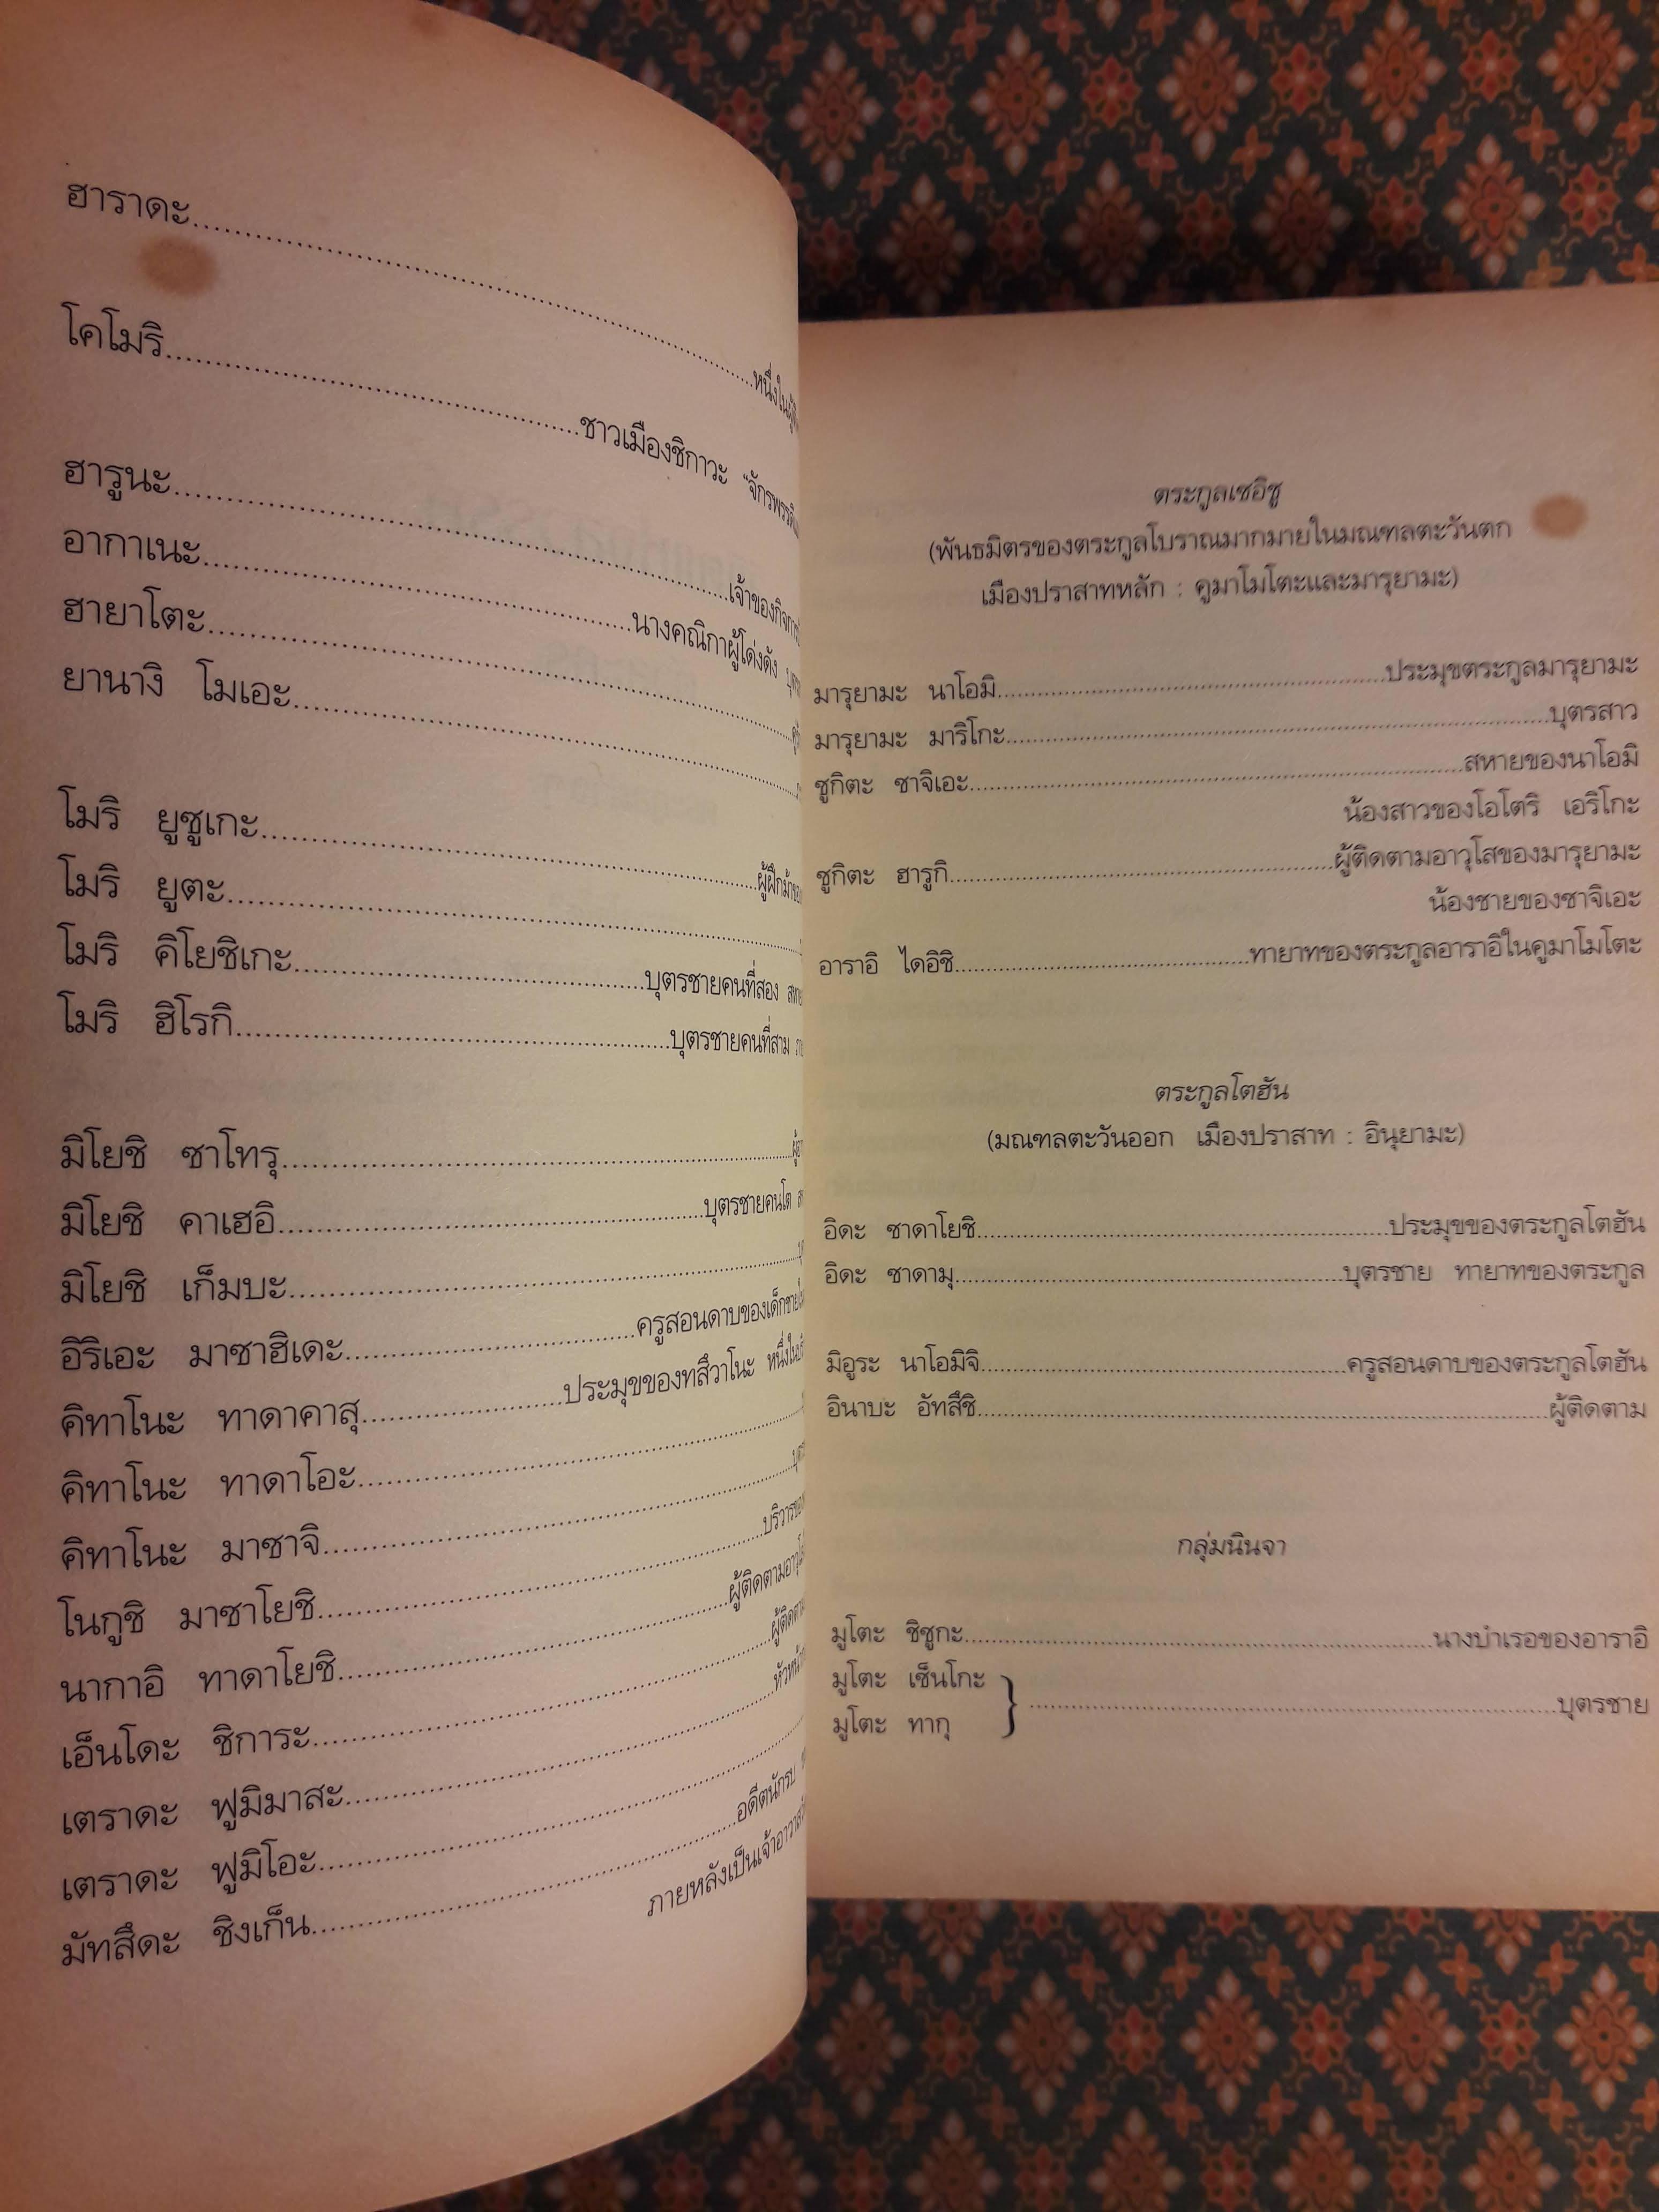 ฮาราดะ
โคโมริ ชาวเมืองชิกาวะ
ฮารูนะ เจ้าของกิจการ
อากาเนะ นางคณิกาผู้โด่งดัง
ฮายาโตะ
ยานางิ โมเอะ
โมริ ยูซูเกะ
โมริ ยูตะ
โมริ คิโยชิเกะ บุตรชายคนที่สอง
โมริ ฮิโรกิ บุตรชายคนที่สาม
มิโยชิ ซาโทรุ
มิโยชิ คาเฮอิ บุตรชายคนโต
มิโยชิ เก็มบะ
อิริเอะ มาซาฮิเดะ ครูสอนดาบของเด็กชาย
คิทาโนะ ทาดาคาสุ ประมุขของทสึวาโนะ
คิทาโนะ ทาดาโอะ
คิทาโนะ มาซาจิ
โนกูชิ มาซาโยชิ
นากาอิ ทาดาโยชิ
เอ็นโดะ ชิการะ
เตราดะ ฟูมิมาสะ
เตราดะ ฟูมิโอะ
มัทสึดะ ชิงเก็น อดีตนักรบ
ภายหลังเป็นเจ้าอาวาส
ตระกูลเซอิชู
(พันธมิตรของตระกูลโบราณมากมายในมณฑลตะวันตก
เมืองปราสาทหลัก : คูมาโมโตะและมารุยามะ)
มารุยามะ นาโอมิ ประมุขตระกูลมารุยามะ
มารุยามะ มาริโกะ บุตรสาว
ซูกิตะ ซาจิเอะ สหายของนาโอมิ
น้องสาวของโอโตริ เอริโกะ
ซูกิตะ ฮารูกิ ผู้ติดตามอาวุโสของมารุยามะ
น้องชายของซาจิเอะ
อาราอิ ไดอิชิ ทายาทของตระกูลอาราอิในคูมาโมโตะ
ตระกูลโตฮัน
(มณฑลตะวันออก เมืองปราสาท : อินุยามะ)
อิดะ ซาดาโยชิ ประมุขของตระกูลโตฮัน
อิดะ ซาดามุ บุตรชาย ทายาทของตระกูล
มิอูระ นาโอมิจิ ครูสอนดาบของตระกูลโตฮัน
อินาบะ อัทสึชิ ผู้ติดตาม
กลุ่มนินจา
มูโตะ ชิซูกะ นางบำเรอของอาราอิ
มูโตะ เซ็นโกะ
มูโตะ ทากุ } บุตรชาย